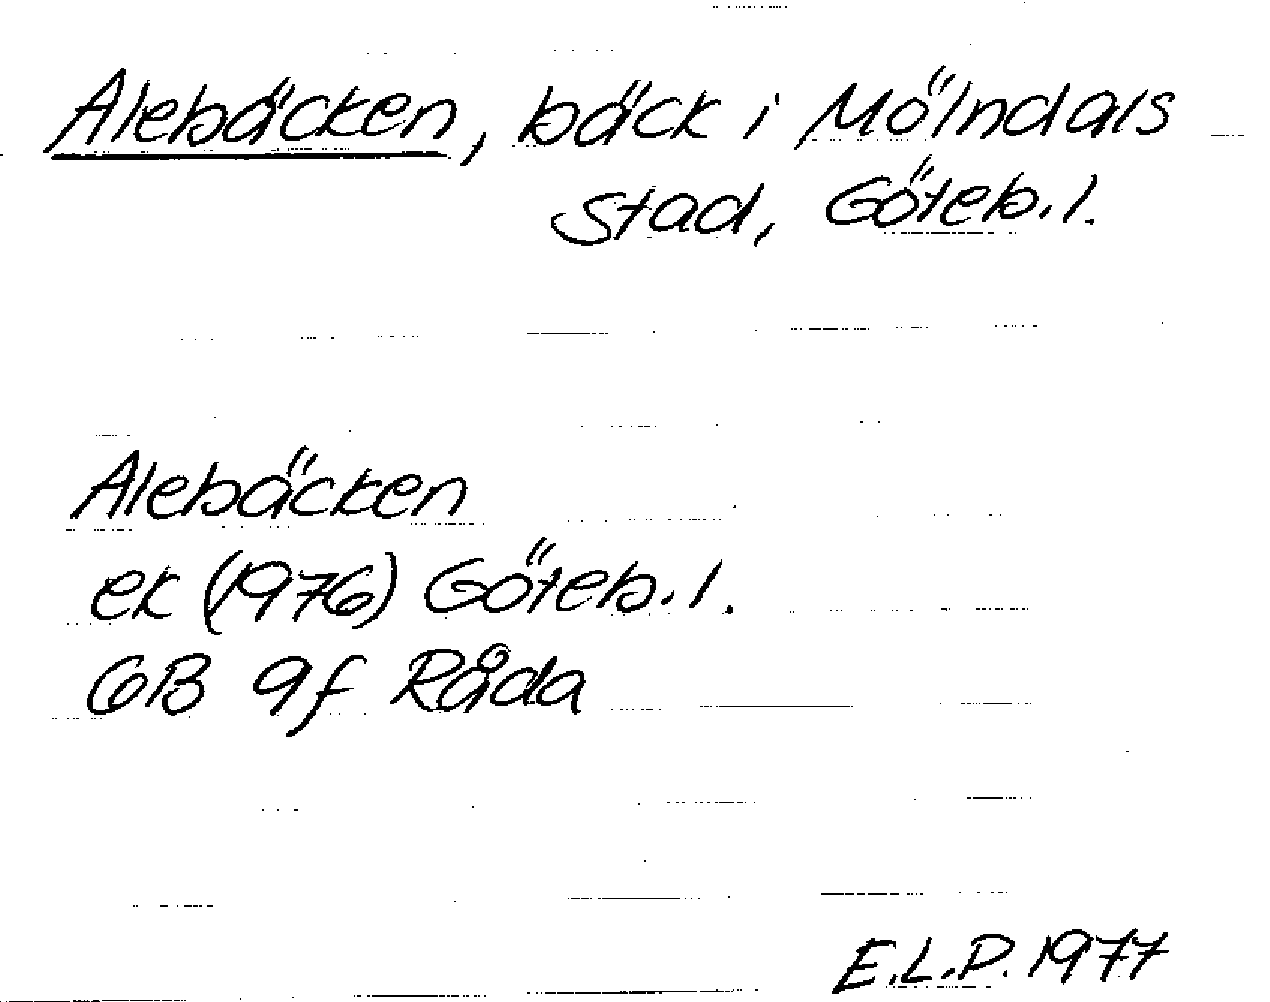 Alebäcken, bäck i Mölndals
stad, Göteb. l.
Alebäcken
ek (1976) Göteb. l.
GB 9f Råda
E.L.P. 1977